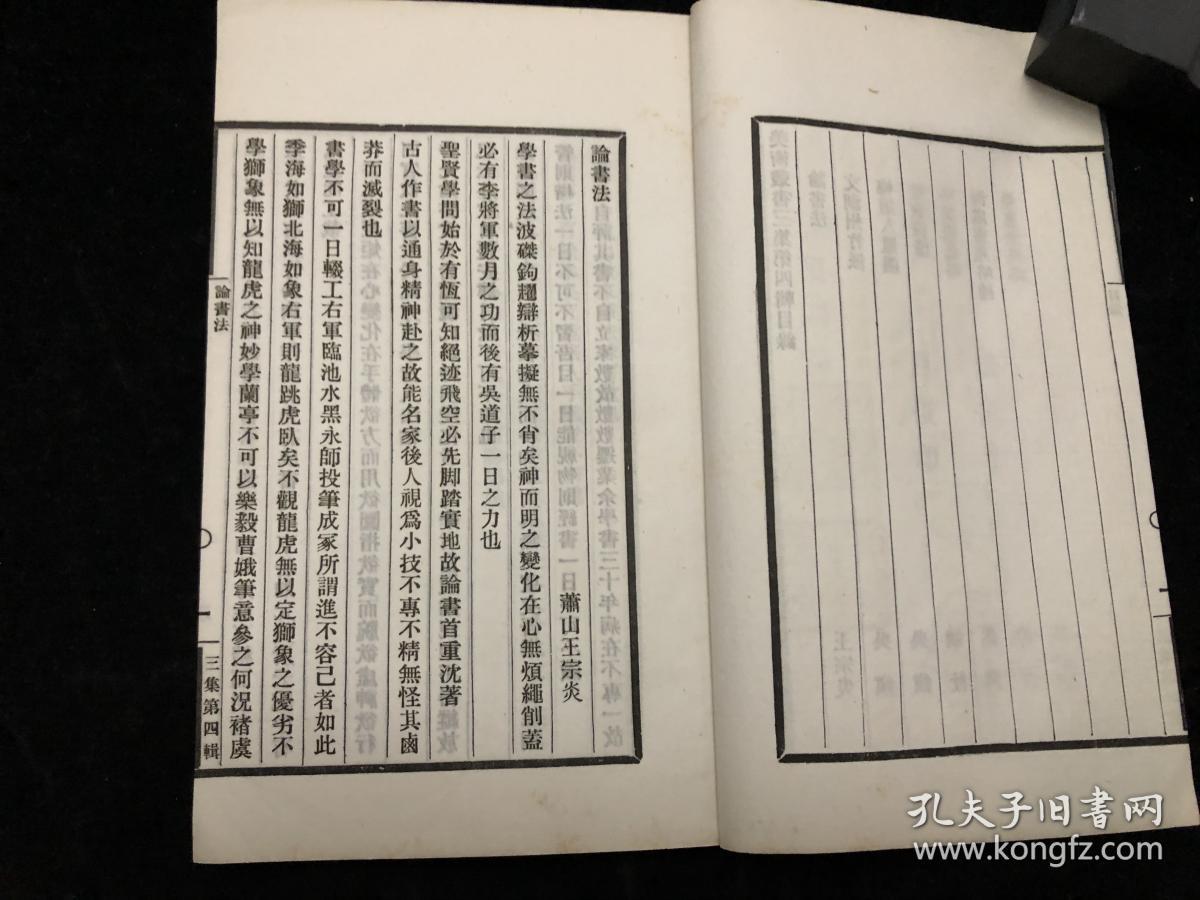 論書法
蕭山王宗炎
學書之法波磔鉤趯辯析摹擬無不肖矣神而明之變化在心無煩繩削蓋
必有李將軍數月之功而後有吳道子一日之力也
聖賢學問始於有恆可知絕迹飛空必先脚踏實地故論書首重沈著
古人作書以通身精神赴之故能名家後人視爲小技不專不精無怪其鹵
莽而滅裂也
書學不可一日輟工右軍臨池水黑永師投筆成冢所謂進不容己者如此
季海如獅北海如象右軍則龍跳虎臥矣不觀龍虎無以定獅象之優劣不
學獅象無以知龍虎之神妙學蘭亭不可以樂毅曹娥筆意參之何況褚虞
論書法
一
三集第四輯
孔夫子旧书网
www.kongfz.com